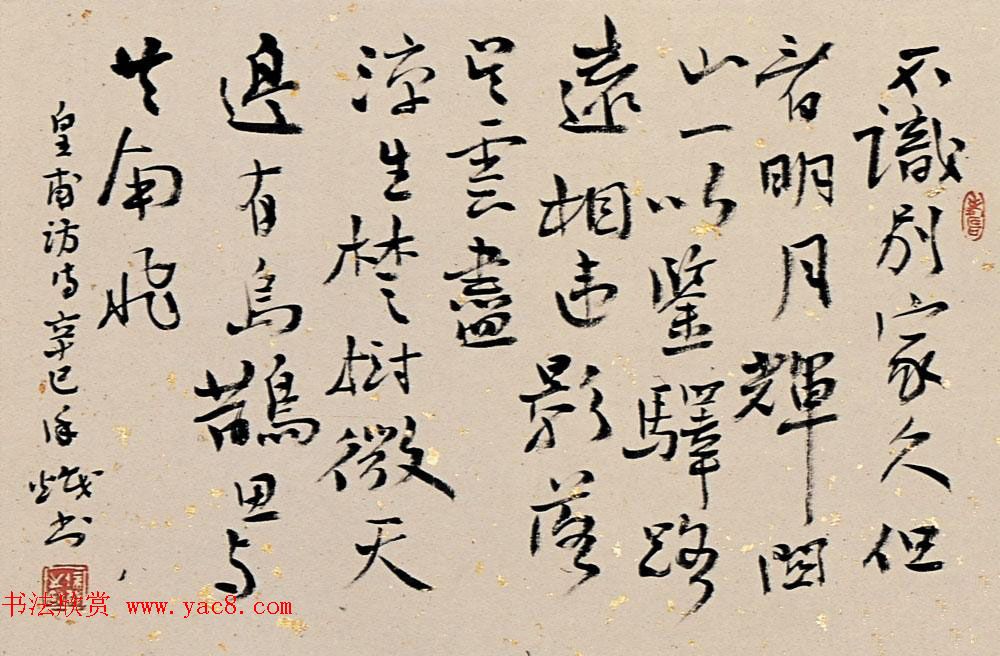 不識別家久但
看明月輝関
山一以鑒驛路
遠相违影落
吴雲盡
涼生楚樹微天
邊有烏鵲思与
共南飛
皇甫訪诗辛巳 书
书法欣赏 www.yac8.com